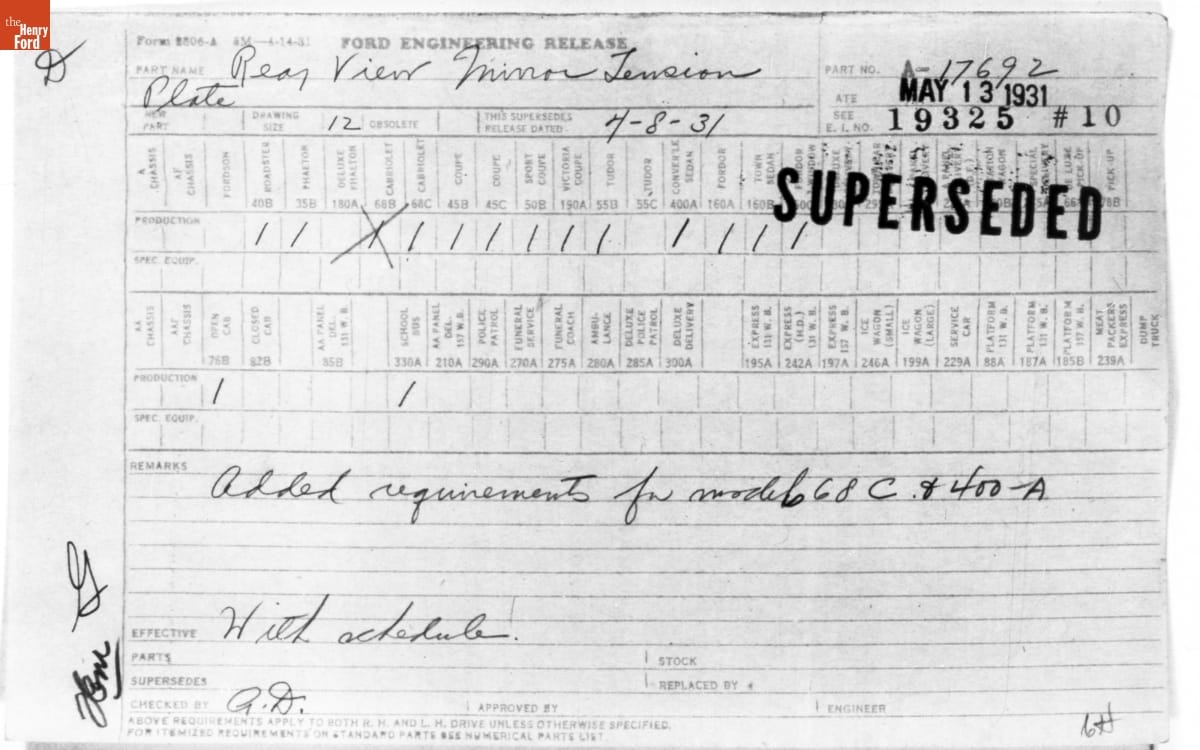 the
Henry
Ford
D
Form 2806-A 8M—4-14-31 FORD ENGINEERING RELEASE
PART NAME Rear View Mirror Tension PART NO. A-17692
Plate
ATE MAY 13 1931
NEW PART DRAWING SIZE 12 OBSOLETE THIS SUPERSEDES RELEASE DATED 4-8-31 SEE E. I. NO. 19325 #10
A CHASSIS AF CHASSIS FORDSON ROADSTER PHAETON DELUXE PHAETON CABRIOLET CABRIOLET COUPE COUPE SPORT COUPE VICTORIA COUPE TUDOR TUDOR CONVER'LE SEDAN FORDOR TOWN SEDAN PICK-UP
40B 35B 180A 68B 68C 45B 45C 50B 190A 55B 55C 400A 160A 160B 78B
SUPERSEDED
PRODUCTION / / X / / / / / / / / / / / /
SPEC. EQUIP.
AA CHASSIS AAF CHASSIS OPEN CAB CLOSED CAB AA PANEL DEL. 131 W. B. SCHOOL BUS AA PANEL DEL. 157 W. B. POLICE PATROL FUNERAL SERVICE FUNERAL COACH AMBU- LANCE DELUXE POLICE PATROL DELUXE DELIVERY EXPRESS 131 W. B. EXPRESS (H.D.) 131 W. B. EXPRESS 157 W. B. ICE WAGON (SMALL) ICE WAGON (LARGE) SERVICE CAR PLATFORM 131 W. B. PLATFORM 131 W. B. PLATFORM 157 W. B. MEAT PACKERS EXPRESS DUMP TRUCK
76B 82B 85B 330A 210A 290A 270A 275A 280A 285A 300A 195A 242A 197A 246A 199A 229A 88A 187A 185B 239A
PRODUCTION / /
SPEC. EQUIP.
REMARKS
Added requirements for models 68C & 400-A
EFFECTIVE With schedule.
PARTS STOCK
SUPERSEDES REPLACED BY
CHECKED BY G.D. APPROVED BY ENGINEER
ABOVE REQUIREMENTS APPLY TO BOTH R. H. AND L. H. DRIVE UNLESS OTHERWISE SPECIFIED.
FOR ITEMIZED REQUIREMENTS ON STANDARD PARTS SEE NUMERICAL PARTS LIST.